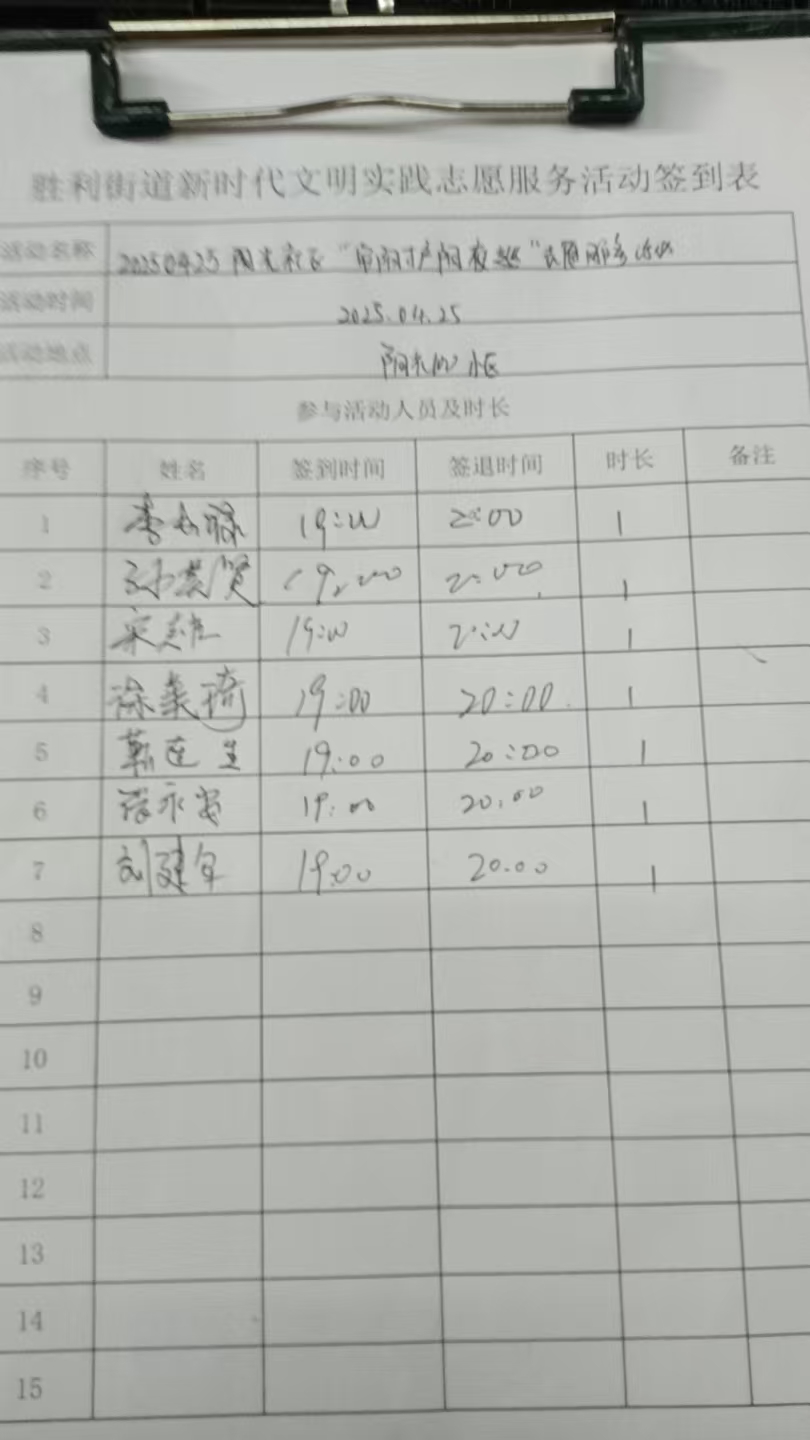 胜利街道新时代文明实践志愿服务活动签到表
活动名称 20250425 阳光社区 志愿服务活动
活动时间 2025.04.25
活动地点 阳光 小区
参与活动人员及时长
序号 姓名 签到时间 签退时间 时长 备注
1 李 禄 19:00 20:00 1
2 孙 贤 19:00 20:00 1
3 宋 19:00 20:00 1
4 徐 琦 19:00 20:00 1
5 靳连生 19:00 20:00 1
6 永安 19:00 20:00 1
7 刘建军 19:00 20.00 1
8
9
10
11
12
13
14
15